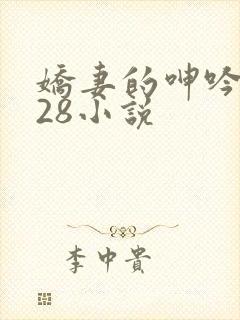 嬌妻的呻吟
28小說
李中貴